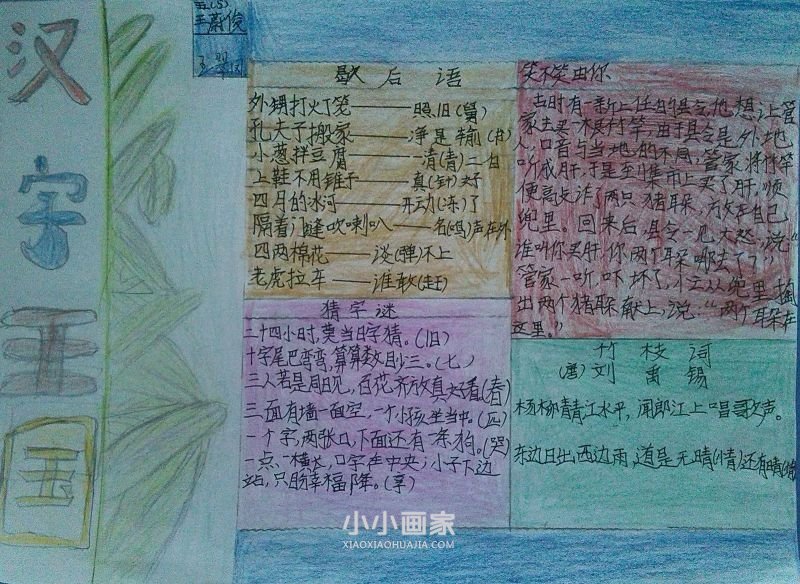 汉
字
王
国
五(5)
王蔚俊
歇后语
外甥打火丁笼——照旧(舅)
孔夫子搬家——净是输(书)
小葱拌豆腐——清(青)二白
上鞋不用锥子 真(针)好
四月的冰河——开动(冻)了
隔着门缝吹喇叭——名(鸣)声在外
四两棉花——谈(弹)不上
老虎拉车——谁敢(赶)
猜字谜
二十四小时,莫当日字猜。(旧)
十字尾巴弯弯,算算数目少三。(七)
三人若是同日见,百花齐放真好看(春)
三面有墙一面空,一个小孩坐当中。(匹)
一个字,两张口,下面还有一条狗。(哭)
一点一横长,口字在中央,小子下边
站,只盼幸福年。(享)
笑不笑由你
古时有一新上任的县令,他想让管
家去买一根竹竿,由于县令是外地
人,口音与当地的不同,管家将竹竿
听成肝,于是到集市上买了肝,顺
便高点诈了两只猪耳朵,放在自己
兜里。回来后县令一见大怒,说:“
谁叫你买肝,你两个耳朵哪去了?”
管家一听,吓坏了,立从兜里掏
出两个猪耳朵献上,说:“两个耳朵在
这里。”
竹枝词
(唐)刘禹锡
杨柳青青江水平,闻郎江上唱歌声。
东边日出西边雨,道是无晴(情)还有晴(情)
小小画家
XIAOXIAOHUAJIA.COM